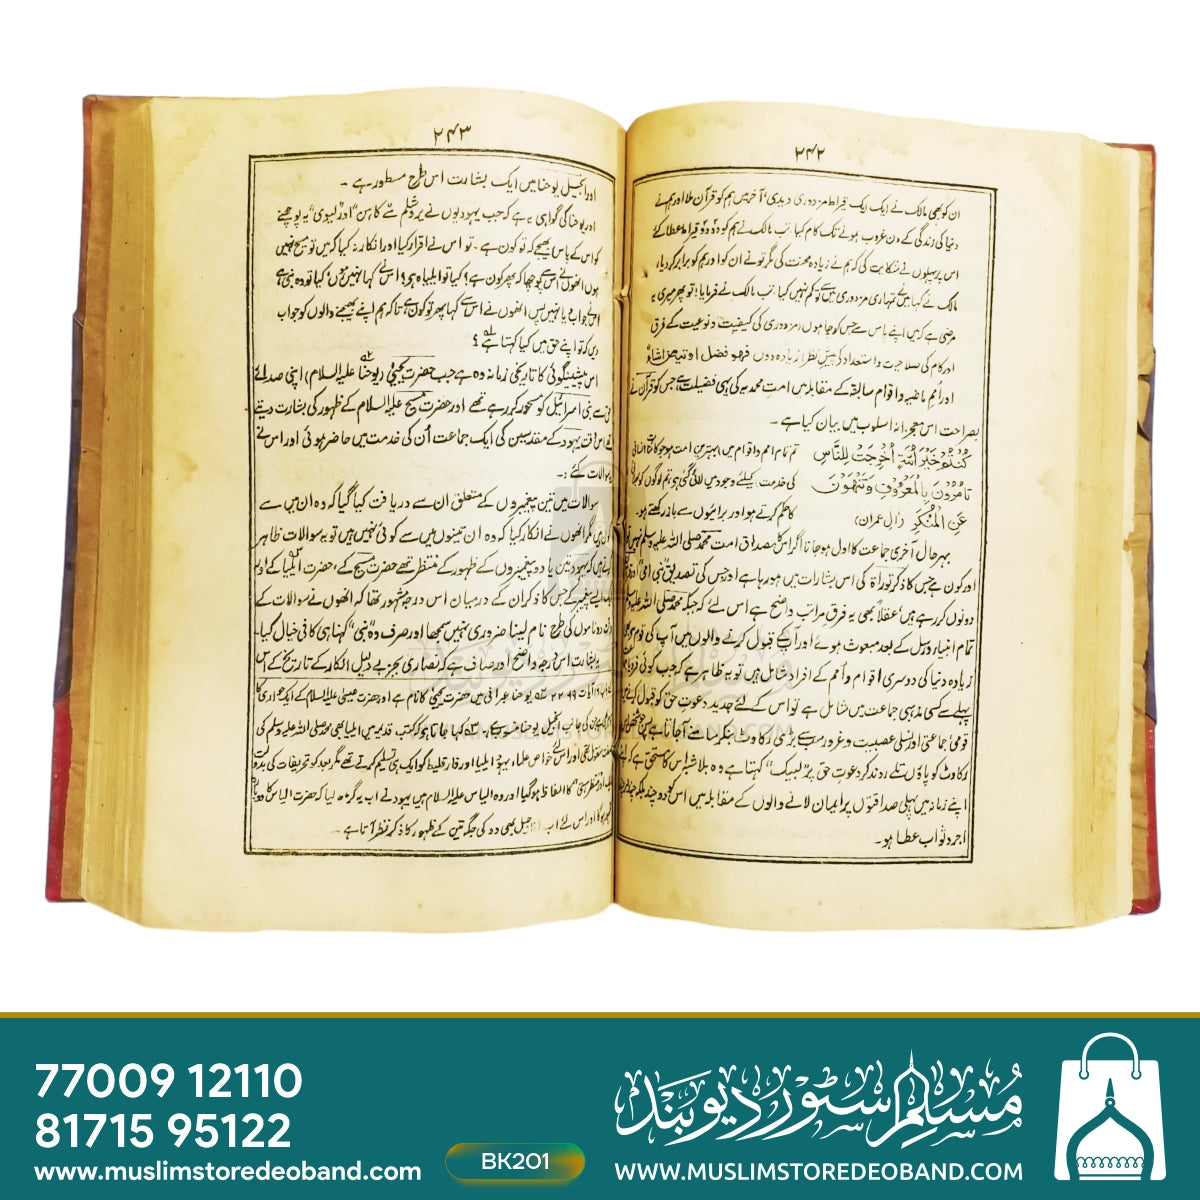 ۲۴۲
ان کو بھی مالک نے ایک ایک قیراط مزدوری دیدی، آخر میں ہم کو قرآن ملا اور ہم نے
دنیا کی زندگی کے دن غروب ہونے تک کام کیا، تب مالک نے ہم کو دو دو قیراط عطا کئے
اس پر پہلوں نے شکایت کی کہ ہم نے زیادہ محنت کی مگر تو نے ان کو اور ہم کو برابر کر دیا،
مالک نے کہا میں نے تمہاری مزدوری میں سے تو کم نہیں کیا، تب مالک نے فرمایا! تو پھر میری یہ
مرضی ہے کہ میں اپنے پاس سے جس کو چاہوں (مزدوری کی کیفیت و نوعیت کے فرق
اور کام کی صلاحیت و استعداد کی پیش نظر) زیادہ دوں فہو فضل اوتیہ من اشاء
اور اُمم ماضیہ و اقوام سالفہ کے مقابلہ میں امت محمدیہ کی یہی فضیلت ہے جس کو قرآن نے
بصراحت اس معجزانہ اسلوب میں بیان کیا ہے۔
كُنْتُمْ خَيْرَ أُمَّةٍ أُخْرِجَتْ لِلنَّاسِ تم تمام امم و اقوام میں بہترین امت ہو جو کائنات انسانی
تَأْمُرُوْنَ بِالْمَعْرُوْفِ وَتَنْهَوْنَ کی خدمت کیلئے وجود میں لائی گئی ہو، تم لوگوں کو
عَنِ الْمُنْكَرِ (آل عمران) کا حکم کرتے ہو اور برائیوں سے باز رکھتے ہو۔
بہر حال آخری جماعت کا اول ہو جانا اگر اس کا مصداق امت محمد صلی اللہ علیہ وسلم نہیں تو
اور کون ہے جس کا ذکر توراۃ کی اس بشارات میں ہو رہا ہے اور جس کی تصدیق نبی امی اور
دونوں کر رہے ہیں، عقلاً بھی یہ فرق مراتب واضح ہے اس لئے کہ جبکہ محمد صلی اللہ علیہ
تمام انبیاء و رسل کے بعد مبعوث ہوئے اور آپ کے قبول کرنے والوں میں آپ کی قوم
زیادہ دنیا کی دوسری اقوام و اُمم کے افراد شامل ہیں تو یہ ظاہر ہے کہ جب کوئی فرد
پہلے سے کسی مذہبی جماعت میں شامل ہے تو اس کے لئے جدید دعوت حق کو قبول کرنے میں
قومی، جماعتی اور نسلی عصبیت و غرور سب سے بڑی رکاوٹ بنکر سامنے آجاتا ہے پس جو شخص اس
رکاوٹ کو پاؤں تلے روند کر دعوت حق پر "لبیک" کہتا ہے وہ بلاشبہ اس کا مستحق ہے کہ
اپنے زمانہ میں پہلی صداقتوں پر ایمان لانے والوں کے مقابلہ میں اس کو دوچند بلکہ چند در
اجر و ثواب عطا ہو۔
۲۴۳
اور انجیل یوحنا میں ایک بشارت اس طرح مسطور ہے۔
اور یوحنا کی گواہی یہ ہے کہ جب یہودیوں نے یروشلم سے کاہن اور لیوی یہ پوچھنے
کو اس کے پاس بھیجے کہ تو کون ہے۔ تو اس نے اقرار کیا اور انکار نہ کیا کہ میں تو مسیح نہیں
ہوں انھوں نے اس سے پوچھا کہ پھر کون ہے؟ کیا تو ایلیاہ ہے؟ اس نے کہا نہیں ہوں، کیا تو وہ نبی ہے؟
اس نے جواب دیا نہیں پس انھوں نے اس سے کہا پھر تو کون ہے، تاکہ ہم اپنے بھیجنے والوں کو جواب
دیں کہ تو اپنے حق میں کیا کہتا ہے؟
اس پیشینگوئی کا تاریخی زمانہ وہ ہے جب حضرت یحییٰ (یوحنا علیہ السلام) اپنی صدائے
حق سے بنی اسرائیل کو مسحور کر رہے تھے اور حضرت مسیح علیہ السلام کے ظہور کی بشارت دیتے
تھے اس وقت یہود کے مقدسین کی ایک جماعت اُن کی خدمت میں حاضر ہوئی اور اس نے
سوالات کئے:۔
سوالات میں تین پیغمبروں کے متعلق ان سے دریافت کیا گیا کہ وہ ان میں سے
کون ہیں مگر انھوں نے انکار کیا کہ وہ ان تینوں میں سے کوئی نہیں ہیں تو یہ سوالات ظاہر
کرتے ہیں کہ یہود تین پیغمبروں کے ظہور کے منتظر تھے حضرت مسیح کے، حضرت ایلیا کے اور
ایک ایسے پیغمبر کے جس کا ذکر ان کے درمیان اس درجہ مشہور تھا کہ انھوں نے سوالات کے
وقت دو ناموں کی طرح نام لینا ضروری نہیں سمجھا اور صرف "وہ نبی" کہنا ہی کافی خیال کیا۔
یہ بشارت اس درجہ واضح اور صاف ہے کہ نصاریٰ بجز بے دلیل انکار کے تاریخ کے اس
باب ۱ آیات ۱۹ - ۲۲ یوحنا عبرانی میں حضرت یحییٰ کا نام ہے اور حضرت عیسیٰ علیہ السلام کے ایک حواری کا
کی جانب انجیل یوحنا منسوب ہے۔ کہا جاتا ہے کہ کتب قدیمہ میں ایلیا بھی محمد صلی اللہ علیہ وسلم کی
صفت منقول تھی اور اس لئے خواص علماء یہود ایلیا اور فارقلیط کو ایک ہی تسلیم کرتے تھے مگر بعد کو تحریفات کی بدولت
منتظر نبی" کا الفاظ ہو گیا اور وہ الیاس علیہ السلام ہیں یہود نے اب یہ گڑھ لیا کہ حضرت الیاس کا دوبارہ
ظہور ہوگا اور اس لئے اب اناجیل بھی دو کی جگہ تین کے ظہور کا ذکر نظر آتا ہے۔
77009 12110
81715 95122
www.muslimstoredeoband.com
BK201
مسلم سٹور دیوبند
WWW.MUSLIMSTOREDEOBAND.COM